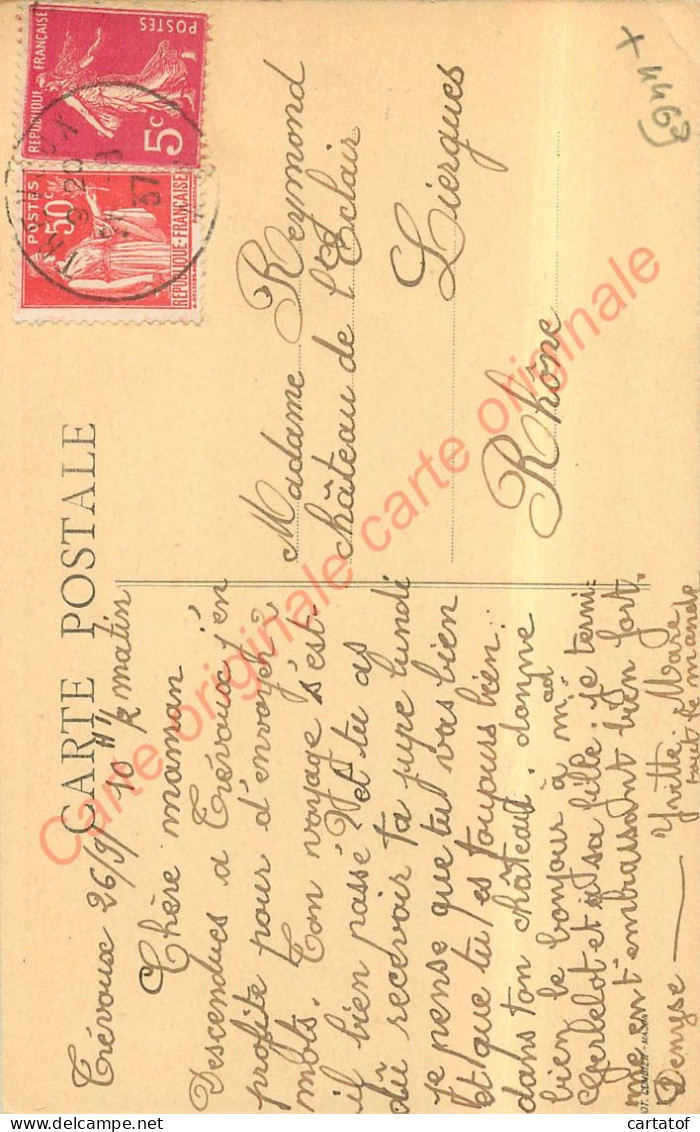 CARTE POSTALE
Trévoux 26/9/ 10 H 1/2 matin
Chère maman
Descendues à Trévoux j'en
profite pour d'envoyer 2
mots. Ton voyage s'est-
il bien passé? Vet tu as
dû recevoir ta jupe lundi
je pense que tu vas bien
et que tu es toujours bien
dans ton château. donne
bien le bonjour à mad
Gerbelot et à sa fille. je termi-
ne en t'embrassant bien fort.
Denyse — Yvette. Mare
tout le monde
Madame Reymond
château de l'Eclair
Liergues
Rhône
REPUBLIQUE FRANÇAISE
POSTES
5c
POSTES
50c
REPUBLIQUE-FRANÇAISE
TREVOUX
37
4463
+
COMBIER - MACON
Carte originale carte originale
© cartatof
delcampe.net